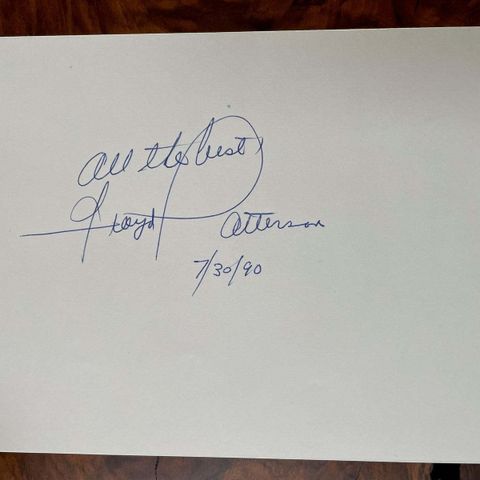 All the best,
Floyd Patterson
7/30/90